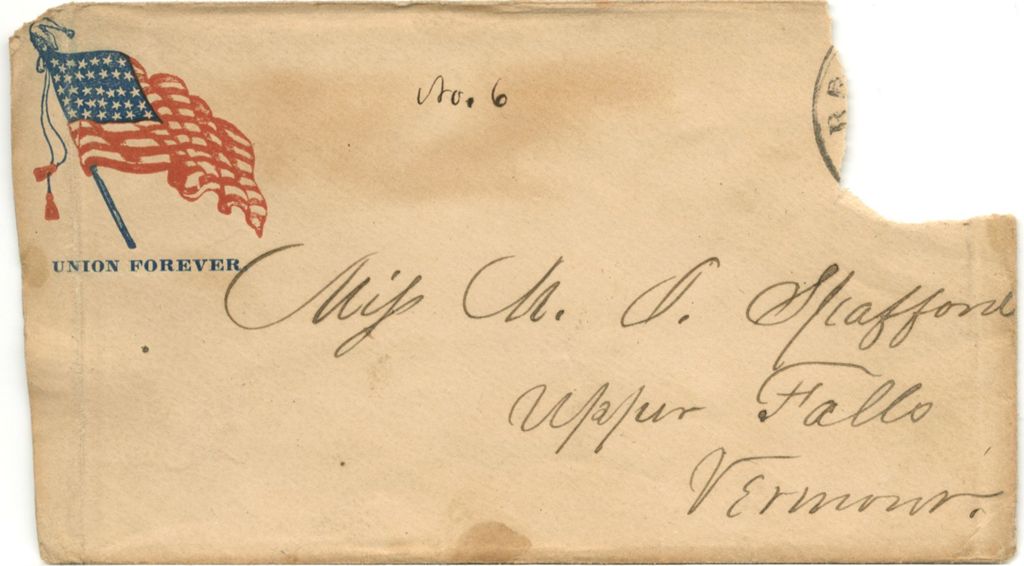 UNION FOREVER
No. 6
Miss M. Spafford
Upper Falls
Vermont.